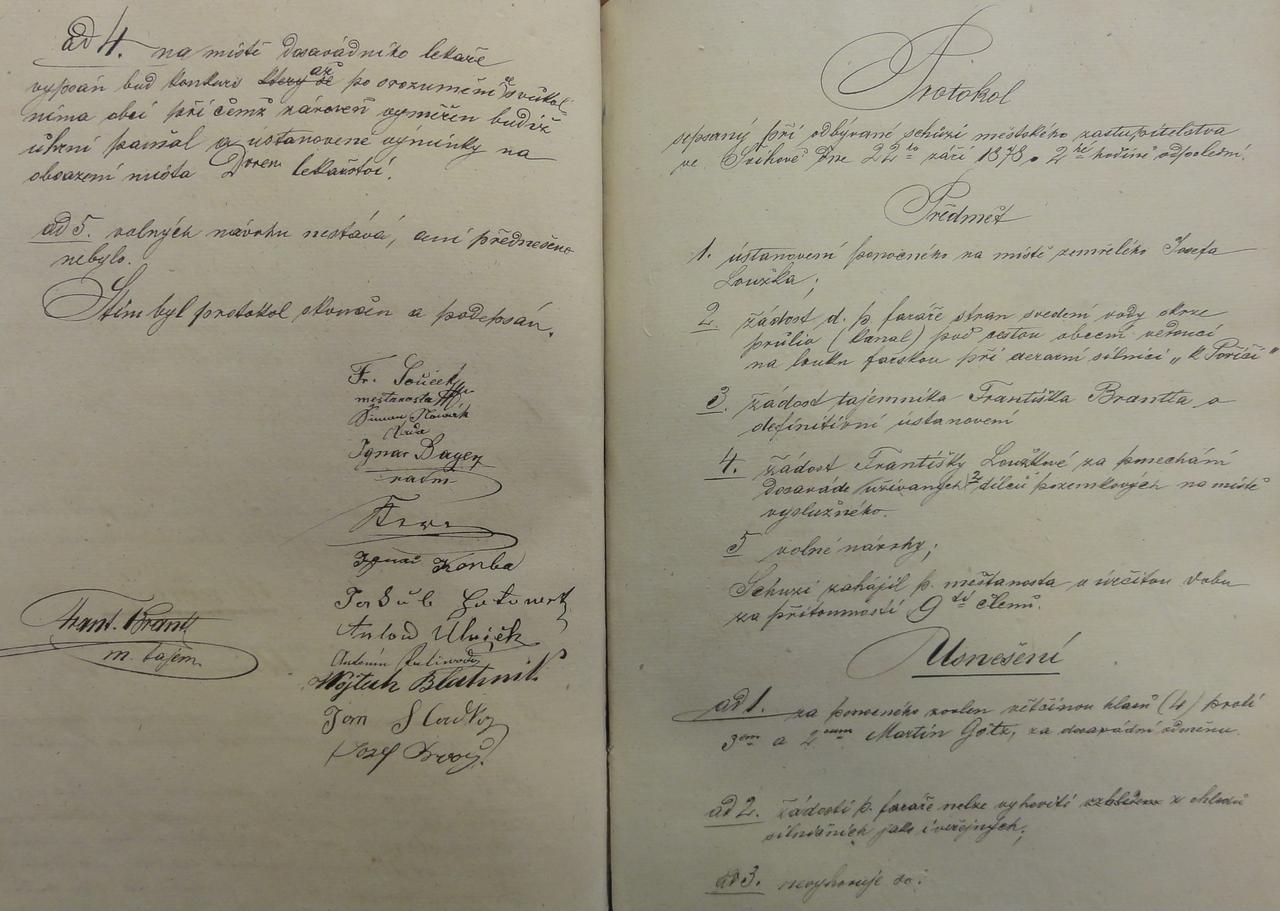 ad 4. na místě dosavádního lékaře
vypsán buď konkurs který se až po srozumění se s vůkol-
níma obcí při čemž zároveň vyměřen budiž
úhrní paušál a ustanovené výmínky na
obsazení místa Drem lékařství.
ad 5. volných návrhu nestává, ani předneseno
nebylo.
Stím byl protokol skončen a podepsán.
Fr. Souček
mešťanosta
Simon Nowak
rada
Ignac Bayer
radní
Ignac Honba
Jakub
Antoň
Antonín
Wojtěch Blahnik
Jan Sladky
Josef
Frant. Brantl
m. tajem.
Protokol
sepsaný při odbývané schůzi městského zastupitelstva
ve dne 22ho září 1878 o 2hé hodině odpolední.
Předmět
1. ústanovení ponocného na místě zemřelého Josefa
Loužka;
2. žádost d. p. faráře stran svedení vody skrze
průliv (kanal) pod cestou obecní vedoucí
na louku farskou při aerarní silnici „k Poříčí"
3. žádost tajemníka Františka Brantla o
definitivní ústanovení
4. žádost Františky Loužkové za ponechání
dosaváde užívaných 2 dílců pozemkových na místě
výslužného.
5 volné návrhy;
Schůzi zahájil p. mešťanosta v určitou dobu
za přítomností 9ti členů.
Usnešení
ad 1. za ponocného zvolen větčinou hlasů (4) proti
3em a 2oum Martin Götz, za dosavádní odměnu.
ad 2. žádosti p. faráře nelze vyhověti z ohledů
silničních jako i veřejných;
ad 3. nevyhovuje se: